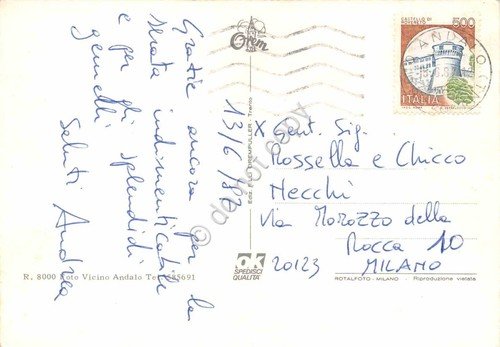 Grazie ancora per la
serata indimenticabile
e per gli splendidi
gemelli
Saluti Andrea
13/6/87
X Gent. Sig.
Rossella e Chicco
Necchi
Via Morozzo della
Rocca 10
20123 MILANO
Orem
CASTELLO DI
ROVERETO
500
ITALIA
ANDALO
Trento
OK
SPEDISCI
QUALITA'
ROTALFOTO - MILANO - Riproduzione vietata
R. 8000 Foto Vicino Andalo Tel. 585691
do not copy